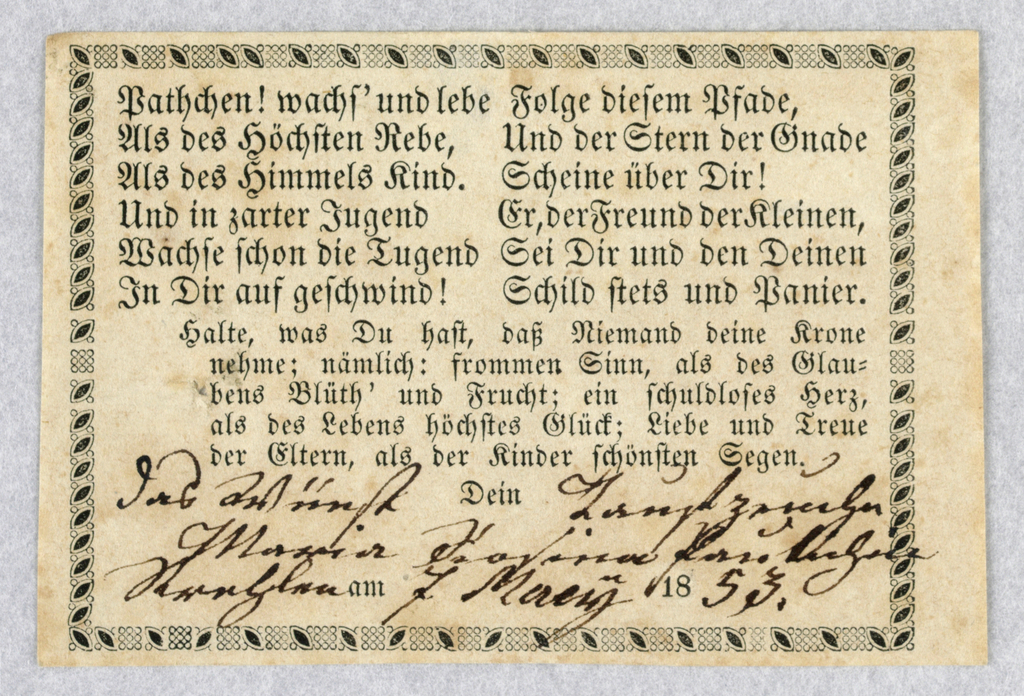 Pathchen! wachs' und lebe
Als des Höchsten Rebe,
Als des Himmels Kind.
Und in zarter Jugend
Wachse schon die Tugend
In Dir auf geschwind!
Folge diesem Pfade,
Und der Stern der Gnade
Scheine über Dir!
Er, der Freund der Kleinen,
Sei Dir und den Deinen
Schild stets und Panier.
Halte, was Du hast, daß Niemand deine Krone
nehme; nämlich: frommen Sinn, als des Glau-
bens Blüth' und Frucht; ein schuldloses Herz,
als des Lebens höchstes Glück; Liebe und Treue
der Eltern, als der Kinder schönsten Segen.
das Wünst Dein
Maria Rosina
Strehlen am 7 Maey 1853.